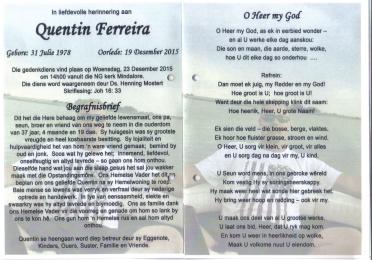 In liefdevolle herinnering aan
Quentin Ferreira
Gebore: 31 Julie 1978 Oorlede: 19 Desember 2015
Die gedenkdiens vind plaas op Woensdag, 23 Desember 2015
om 14h00 vanuit die NG kerk Mindalore.
Die diens word waargeneem deur Ds. Henning Mostert
Skriflesing: Joh 16: 33
Begrafnisbrief
Dit het die Here behaag om my geliefde lewensmaat, ons pa,
seun, broer en vriend van ons weg te neem in die ouderdom
van 37 jaar, 4 maande en 19 dae. Sy huisgesin was sy grootste
vreugde en heel kosbaarste besitting. Sy lojaliteit en
hulpvaardigheid het van hom 'n ware vriend gemaak; bemind by
oud en jonk. Soos wat hy geleef het; innemend, liefdevol,
onselfsugtig en altyd tevrede – so gaan ons hom onthou.
Dieselfde hand wat jou aan die slaap gesus het sal jou wakker
maak met die Opstandingsdae. Ons Hemelse Vader het dit
begaan om ons geliefde Quentin na sy Hemelwoning te roep.
Baie mense se lewens is verryk en verfraai deur sy nederige
optrede en handewerk. Hy is van eensaamheid, siekte en
swaarkry wes hy altyd tevrede en blymoedig. Ons as familie dank
ons Hemelse Vader vir die voorreg en genade om hom so lank by
ons te kon hê. Ons gun hom 'n hemelse rus en sal hom altyd
onthou.
Quentin se heengaan word diep betreur deur sy Eggenote,
Kinders, Ouers, Suster, Familie en Vriende.
O Heer my God
O Heer my God, as ek in eerbied wonder –
en al U werke elke dag aanskou:
Die son en maan, die aarde, sterre, wolke,
hoe U dit elke dag so onderhou ....
Refrein:
Dan moet ek juig, my Redder en my God!
Hoe groot is U; hoe groot is U!
Want deur die hele skepping klink dit saam:
Hoe heerlik, Heer, U grote Naam!
Ek sien die veld – die bosse, berge, vlaktes,
Ek hoor hoe fluister grasse, stroom en wind.
O Heer, U sorg vir klein, vir groot, vir alles
en U sorg dag na dag vir my, U kind.
U Seun word mens, in ons gebroke wêreld
Kom vestig Hy sy koningsheerskappy
Hy maak weer heel wat sonde hier gebreek het.
Hy bring weer hoop en redding – ook vir my.
U maak ons deel van al U grootse werke,
U laat ons bid, Heer, dat U ryk mag kom,
En kom U weer in heerlikheid op wolke,
Maak U volkome nuut U eiendom.